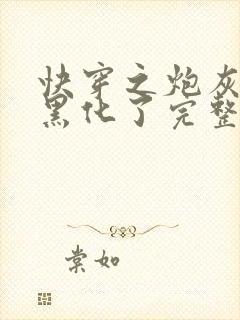 快穿之炮灰
黑化了完整
棠如